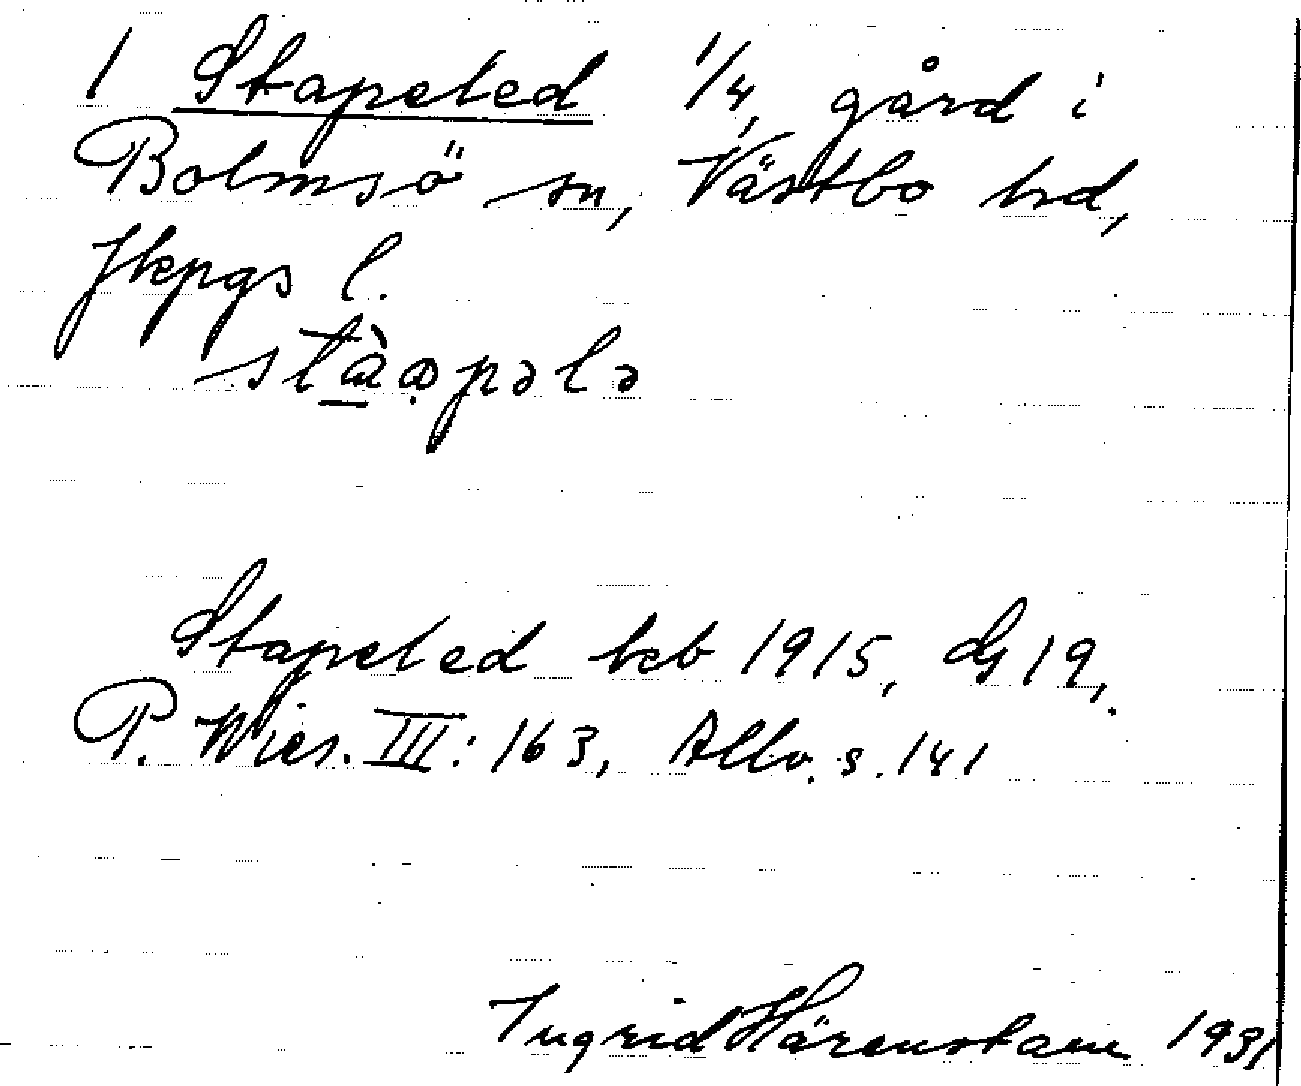 1 Stapeled 1/4 gård i
Bolmsö sn, Västbo hd,
Jkpgs l.
Stapeled keb 1915, G 19,
P. Wies. III: 163, Allbo. s. 141
Ingrid Härenstam 1931